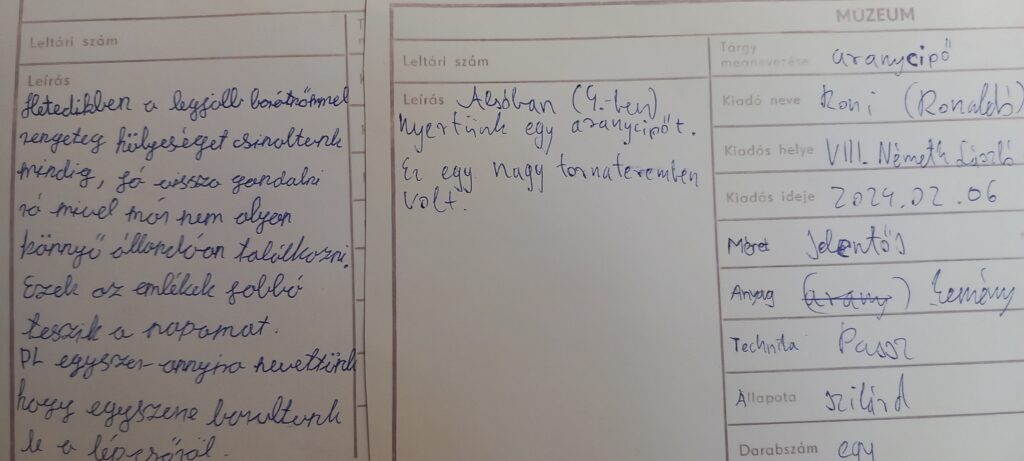 Leltári szám
Leírás
Hetedikben a legjobb barátnőmmel
rengeteg hülyeséget csinoltunk
mindig, jó vissza gondolni
rá mivel már nem olyan
könnyű állandóan találkozni.
Ezek az emlékek jobbá
teszik a napomat.
PL egyszer annyira nevettünk
hogy egyszerre borultunk
le a lépcsőről.
MÚZEUM
Leltári szám
Leírás Alsóban (4.-ben)
nyertünk egy aranycipőt.
Ez egy nagy tornateremben
volt.
Tárgy
megnevezése aranycipő
Kiadó neve Roni (Ronaldó)
Kiadás helye VIII. Németh László
Kiadás ideje 2024.02.06
Méret jelentős
Anyag (arany) kemény
Technika Passz
Állapota szilárd
Darabszám egy